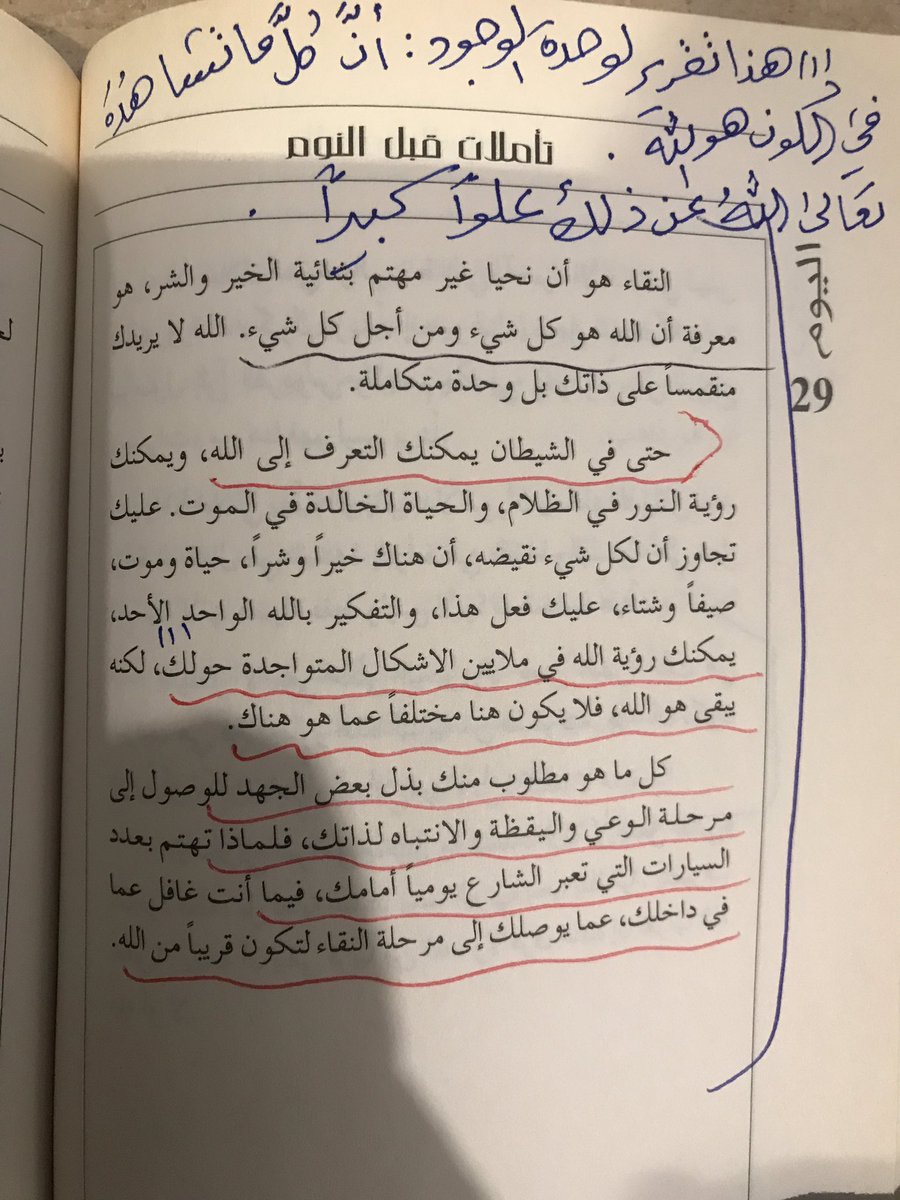 (١) هذا تقرير لوحدة الوجود: أنَّ كُلَّ ما نشاهدهُ
في الكون هو الله .
تعالى اللهُ عن ذلك علواً كبيراً .
تأملات قبل النوم
اليوم
29
النقاء هو أن نحيا غير مهتم بثنائية الخير والشر، هو
معرفة أن الله هو كل شيء ومن أجل كل شيء. الله لا يريدك
منقمساً على ذاتك بل وحدة متكاملة.
حتى في الشيطان يمكنك التعرف إلى الله، ويمكنك
رؤية النور في الظلام، والحياة الخالدة في الموت. عليك
تجاوز أن لكل شيء نقيضه، أن هناك خيراً وشراً، حياة وموت،
صيفاً وشتاء، عليك فعل هذا، والتفكير بالله الواحد الأحد،
يمكنك رؤية الله في ملايين الاشكال المتواجدة حولك(١)، لكنه
يبقى هو الله، فلا يكون هنا مختلفاً عما هو هناك.
كل ما هو مطلوب منك بذل بعض الجهد للوصول إلى
مرحلة الوعي واليقظة والانتباه لذاتك، فلماذا تهتم بعدد
السيارات التي تعبر الشارع يومياً أمامك، فيما أنت غافل عما
في داخلك، عما يوصلك إلى مرحلة النقاء لتكون قريباً من الله.